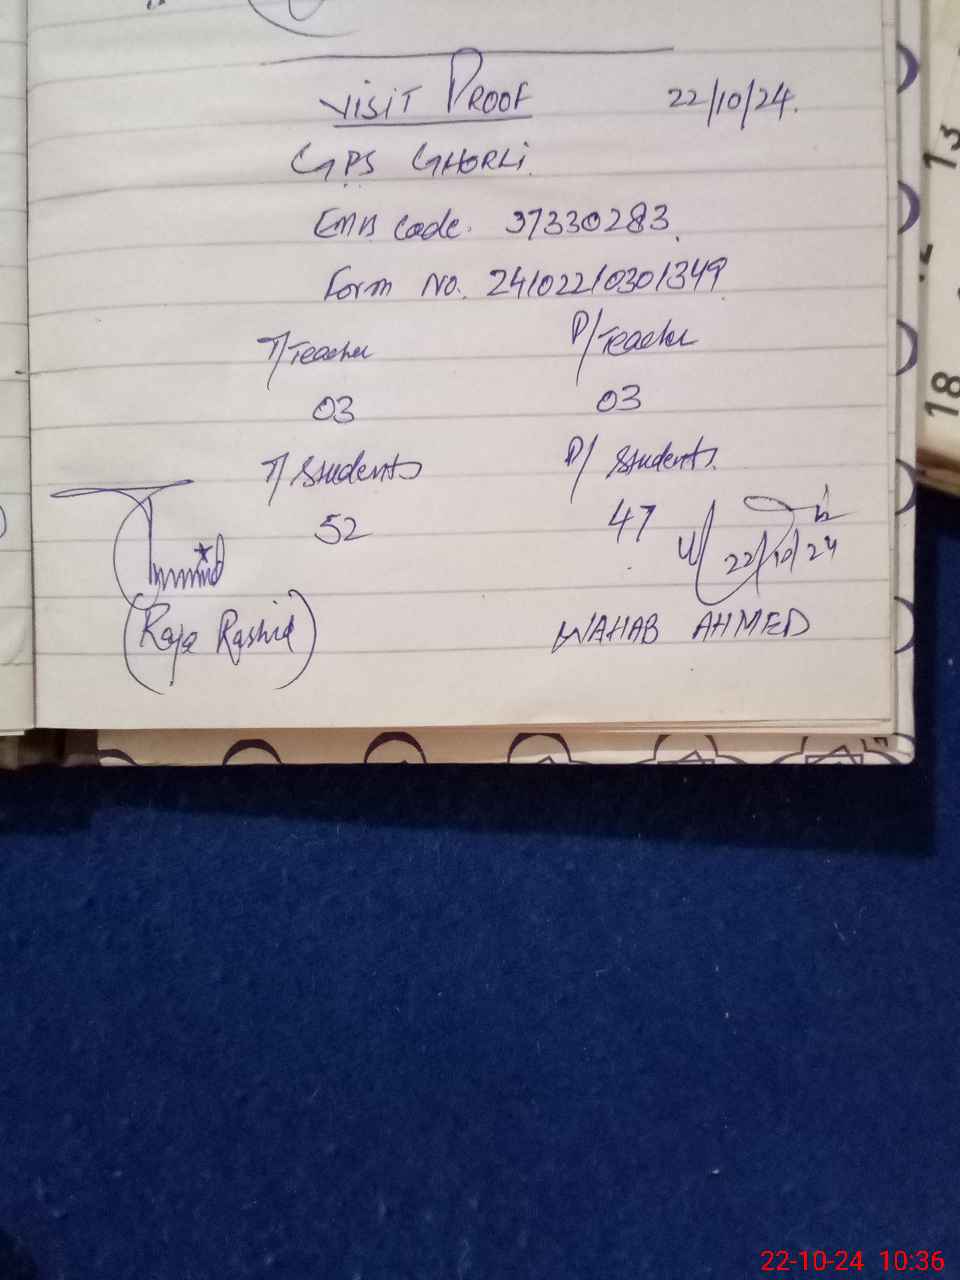 VISIT PROOF 22/10/24.
GPS GHORLI.
EMIS Code. 37330283.
Form No. 24102210301349
T/Teacher P/Teacher
03 03
T/Students P/Students.
52 47
22/10/24
(Raja Rashid) WAHAB AHMED
13
12
18
22-10-24 10:36